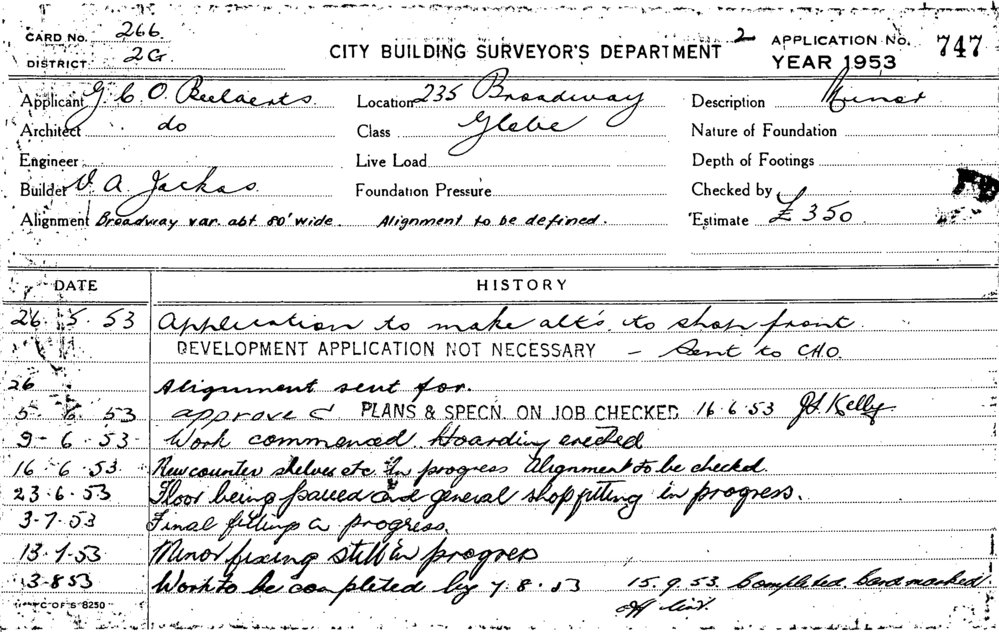 CARD No. 266.
DISTRICT. 2G.
CITY BUILDING SURVEYOR'S DEPARTMENT
2
APPLICATION No. 747
YEAR 1953
Applicant G. C. O.
Location 235 Broadway
Description Minor
Architect do
Class Glebe
Nature of Foundation
Engineer
Live Load
Depth of Footings
Builder V A. Jackas.
Foundation Pressure
Checked by
Alignment Broadway var. abt. 80' wide. Alignment to be defined.
Estimate £350
DATE HISTORY
26. 5. 53 Application to make alt's. to shop front.
DEVELOPMENT APPLICATION NOT NECESSARY – Sent to C.H.O.
26 Alignment sent for.
5 6 53 approved PLANS & SPECN. ON JOB CHECKED 16.6.53 Kelly
9-6.53. Work commenced Hoarding erected
16 6 53. New counter shelves etc. In progress Alignment to be checked.
23.6.53 Floor being paved and general shopfitting in progress.
3-7.53 Final fittings in progress.
13.7.53 Minor fixing still in progress
3-8 53 Work to be completed by 7.8.53 15.9.53. Completed. Card marked
off
C OF S 8250